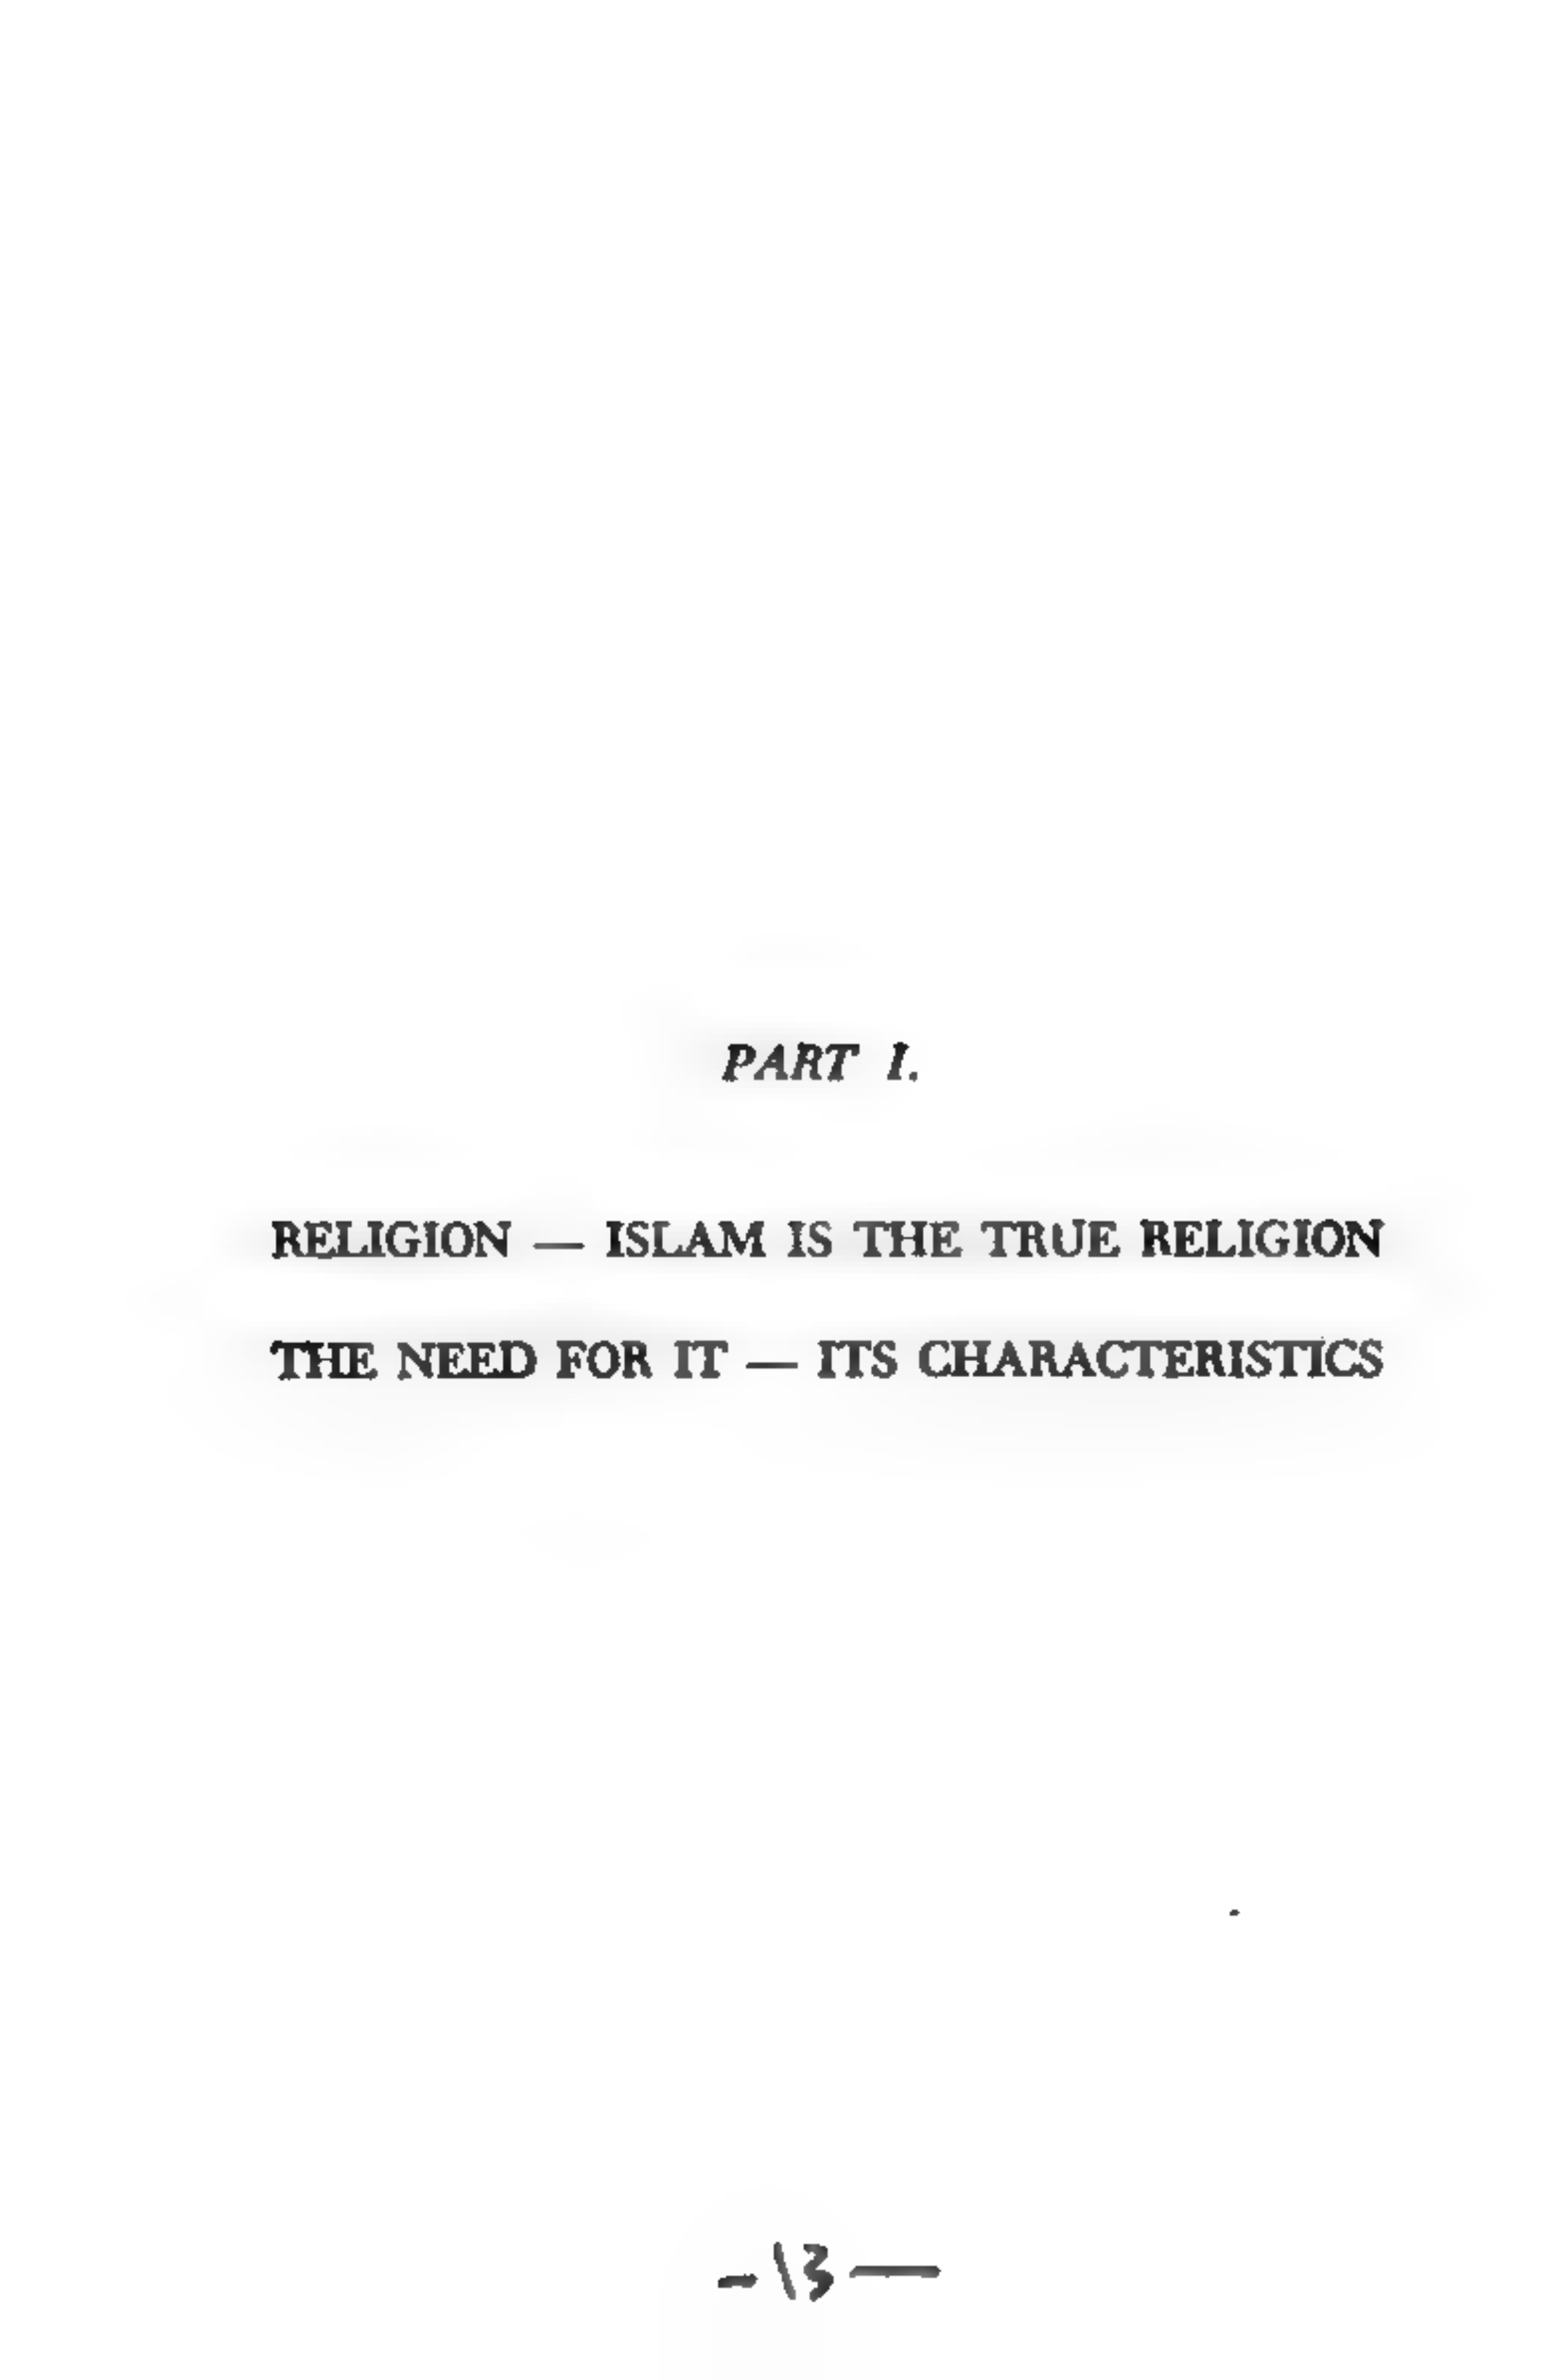 PART I.
RELIGION — ISLAM IS THE TRUE RELIGION
THE NEED FOR IT — ITS CHARACTERISTICS
-13—